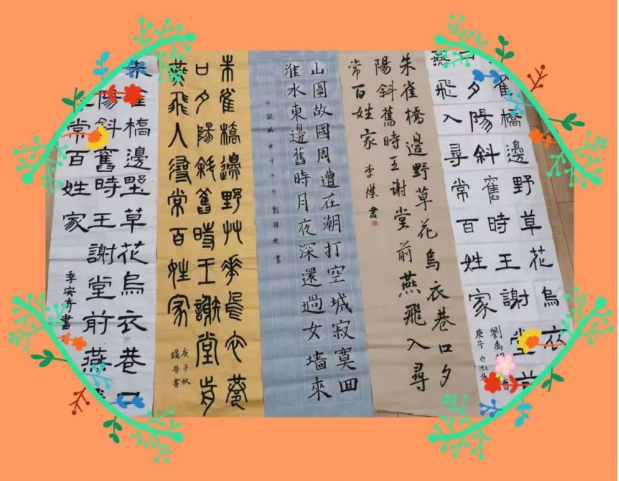 朱雀橋邊野草花烏衣巷口
陽斜舊時王謝堂前燕
常百姓家
書
朱雀橋邊野艸華烏衣巷
口夕陽斜舊時王謝堂前
燕飛入尋常百姓家
庚子秋
書
山圍故國周遭在潮打空城寂寞回
淮水東邊舊時月夜深還過女墻來
朱雀橋邊野草花烏衣巷口夕
陽斜舊時王謝堂前燕飛入尋
常百姓家 李傑書
雀橋邊野草花烏衣
夕陽斜舊時王謝堂前
飛入尋常百姓家
劉禹
庚子